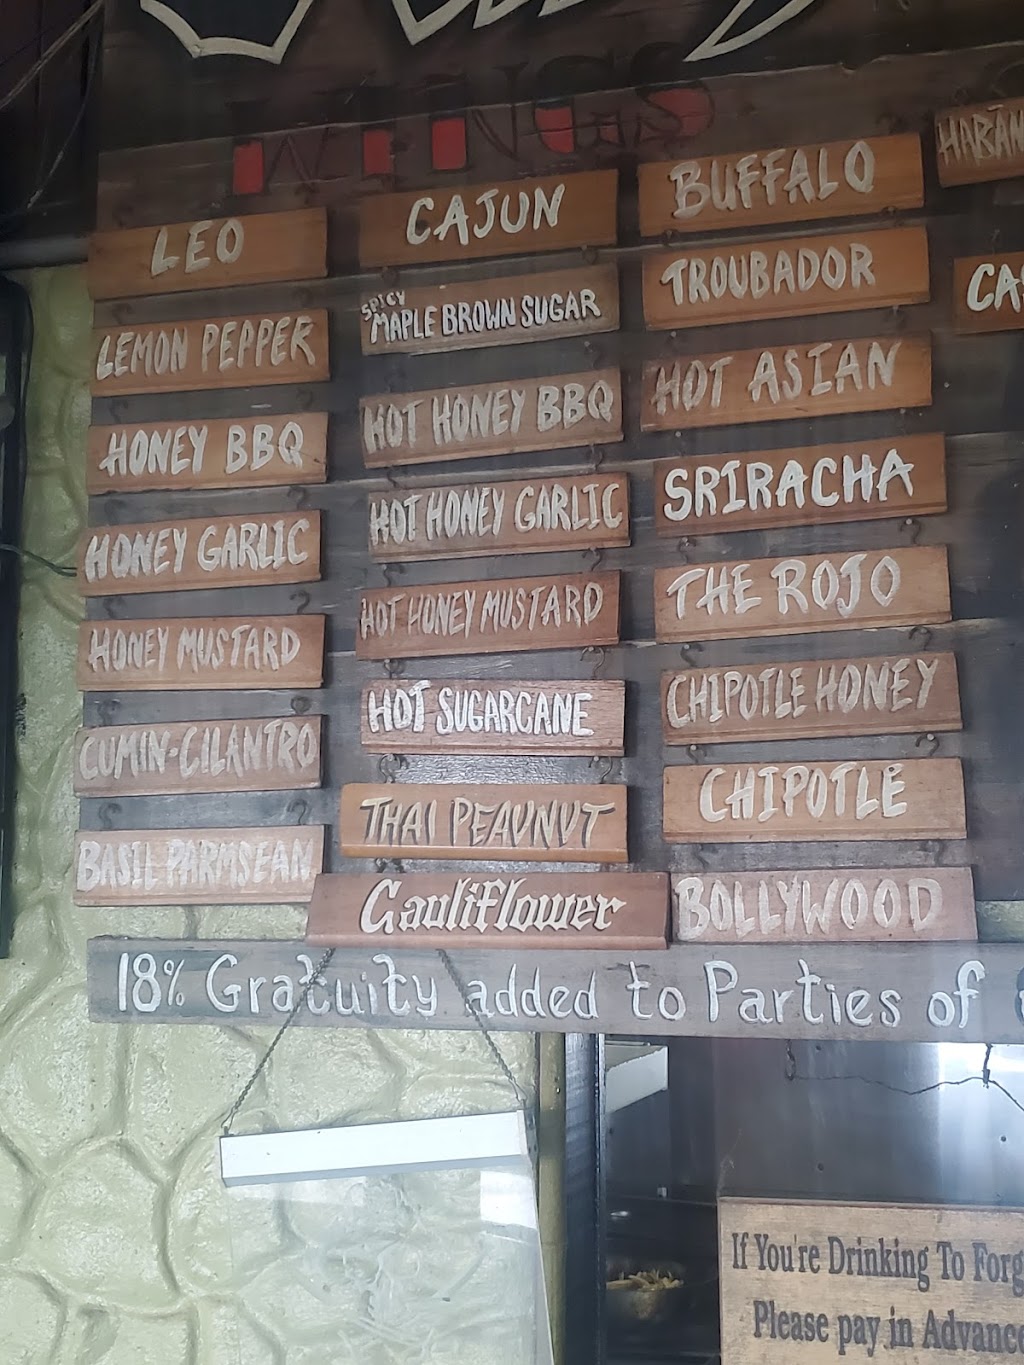 WINGS
LEO
LEMON PEPPER
HONEY BBQ
HONEY GARLIC
HONEY MUSTARD
CUMIN-CILANTRO
BASIL PARMSEAN
CAJUN
SPICY
MAPLE BROWN SUGAR
HOT HONEY BBQ
HOT HONEY GARLIC
HOT HONEY MUSTARD
HOT SUGARCANE
THAI PEAVNVT
Cauliflower
BUFFALO
TROUBADOR
HOT ASIAN
SRIRACHA
THE ROJO
CHIPOTLE HONEY
CHIPOTLE
BOLLYWOOD
HABAN
CA
18% Gratuity added to Parties of
If You're Drinking To Forg
Please pay in Advance